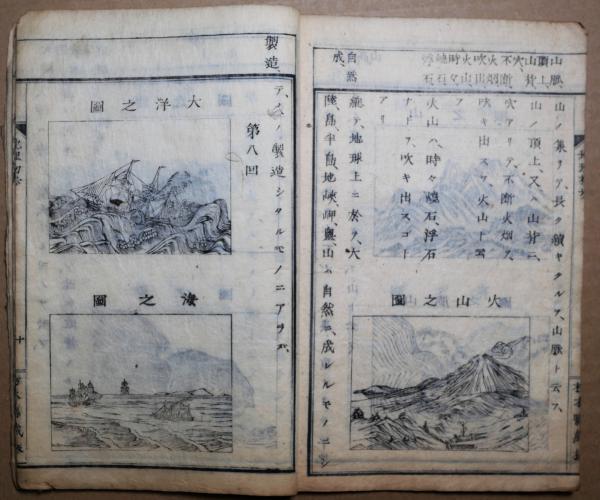 山脈、
山ノ集リテ、長ク續キタルヲ、山脈ト云フ、
頂上、
山ノ頂上又ハ山背ニ
穴、
不断、
火烟、
穴アリテ、不断火烟ヲ
吹出、
火山、
吹キ出スヲ、火山ト云フ、
時々、
火山ハ、時々燒石浮石
燒石、
浮石、
ナドヲ、吹キ出スコト
アリ
火山之圖
自然、
成、
總テ、地球上ニ於テ、大
陸島半島地峽岬與山ハ自然ニ成レルモノニシ
製造、
テ、人ノ製造シタルモノニアラズ、
第八囘
大洋之圖
海之圖
十